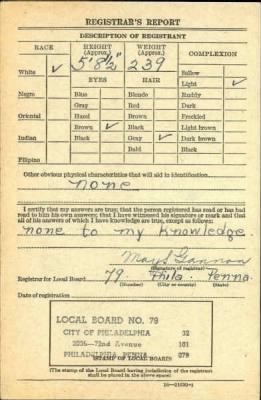 REGISTRAR'S REPORT
DESCRIPTION OF REGISTRANT
RACE HEIGHT (Approx.) WEIGHT (Approx.) COMPLEXION
White ✓ 5' 8½" 239 Sallow
EYES HAIR Light ✓
Negro Blue Blonde Ruddy
Gray Red Dark
Oriental Hazel Brown Freckled
Brown ✓ Black Light brown
Indian Black Gray ✓ Dark brown
Bald Black
Filipino
Other obvious physical characteristics that will aid in identification
none
I certify that my answers are true; that the person registered has read or has had
read to him his own answers; that I have witnessed his signature or mark and that
all of his answers of which I have knowledge are true, except as follows:
none to my knowledge
May S Gannon
(Signature of registrar)
Registrar for Local Board 79 Phila. Penna
(Number) (City or county) (State)
Date of registration
LOCAL BOARD NO. 79
CITY OF PHILADELPHIA 32
72nd Avenue 101
PHILADELPHIA, PENNA 079
STAMP OF LOCAL BOARD
(The stamp of the Local Board having jurisdiction of the registrant
shall be placed in the above space.)